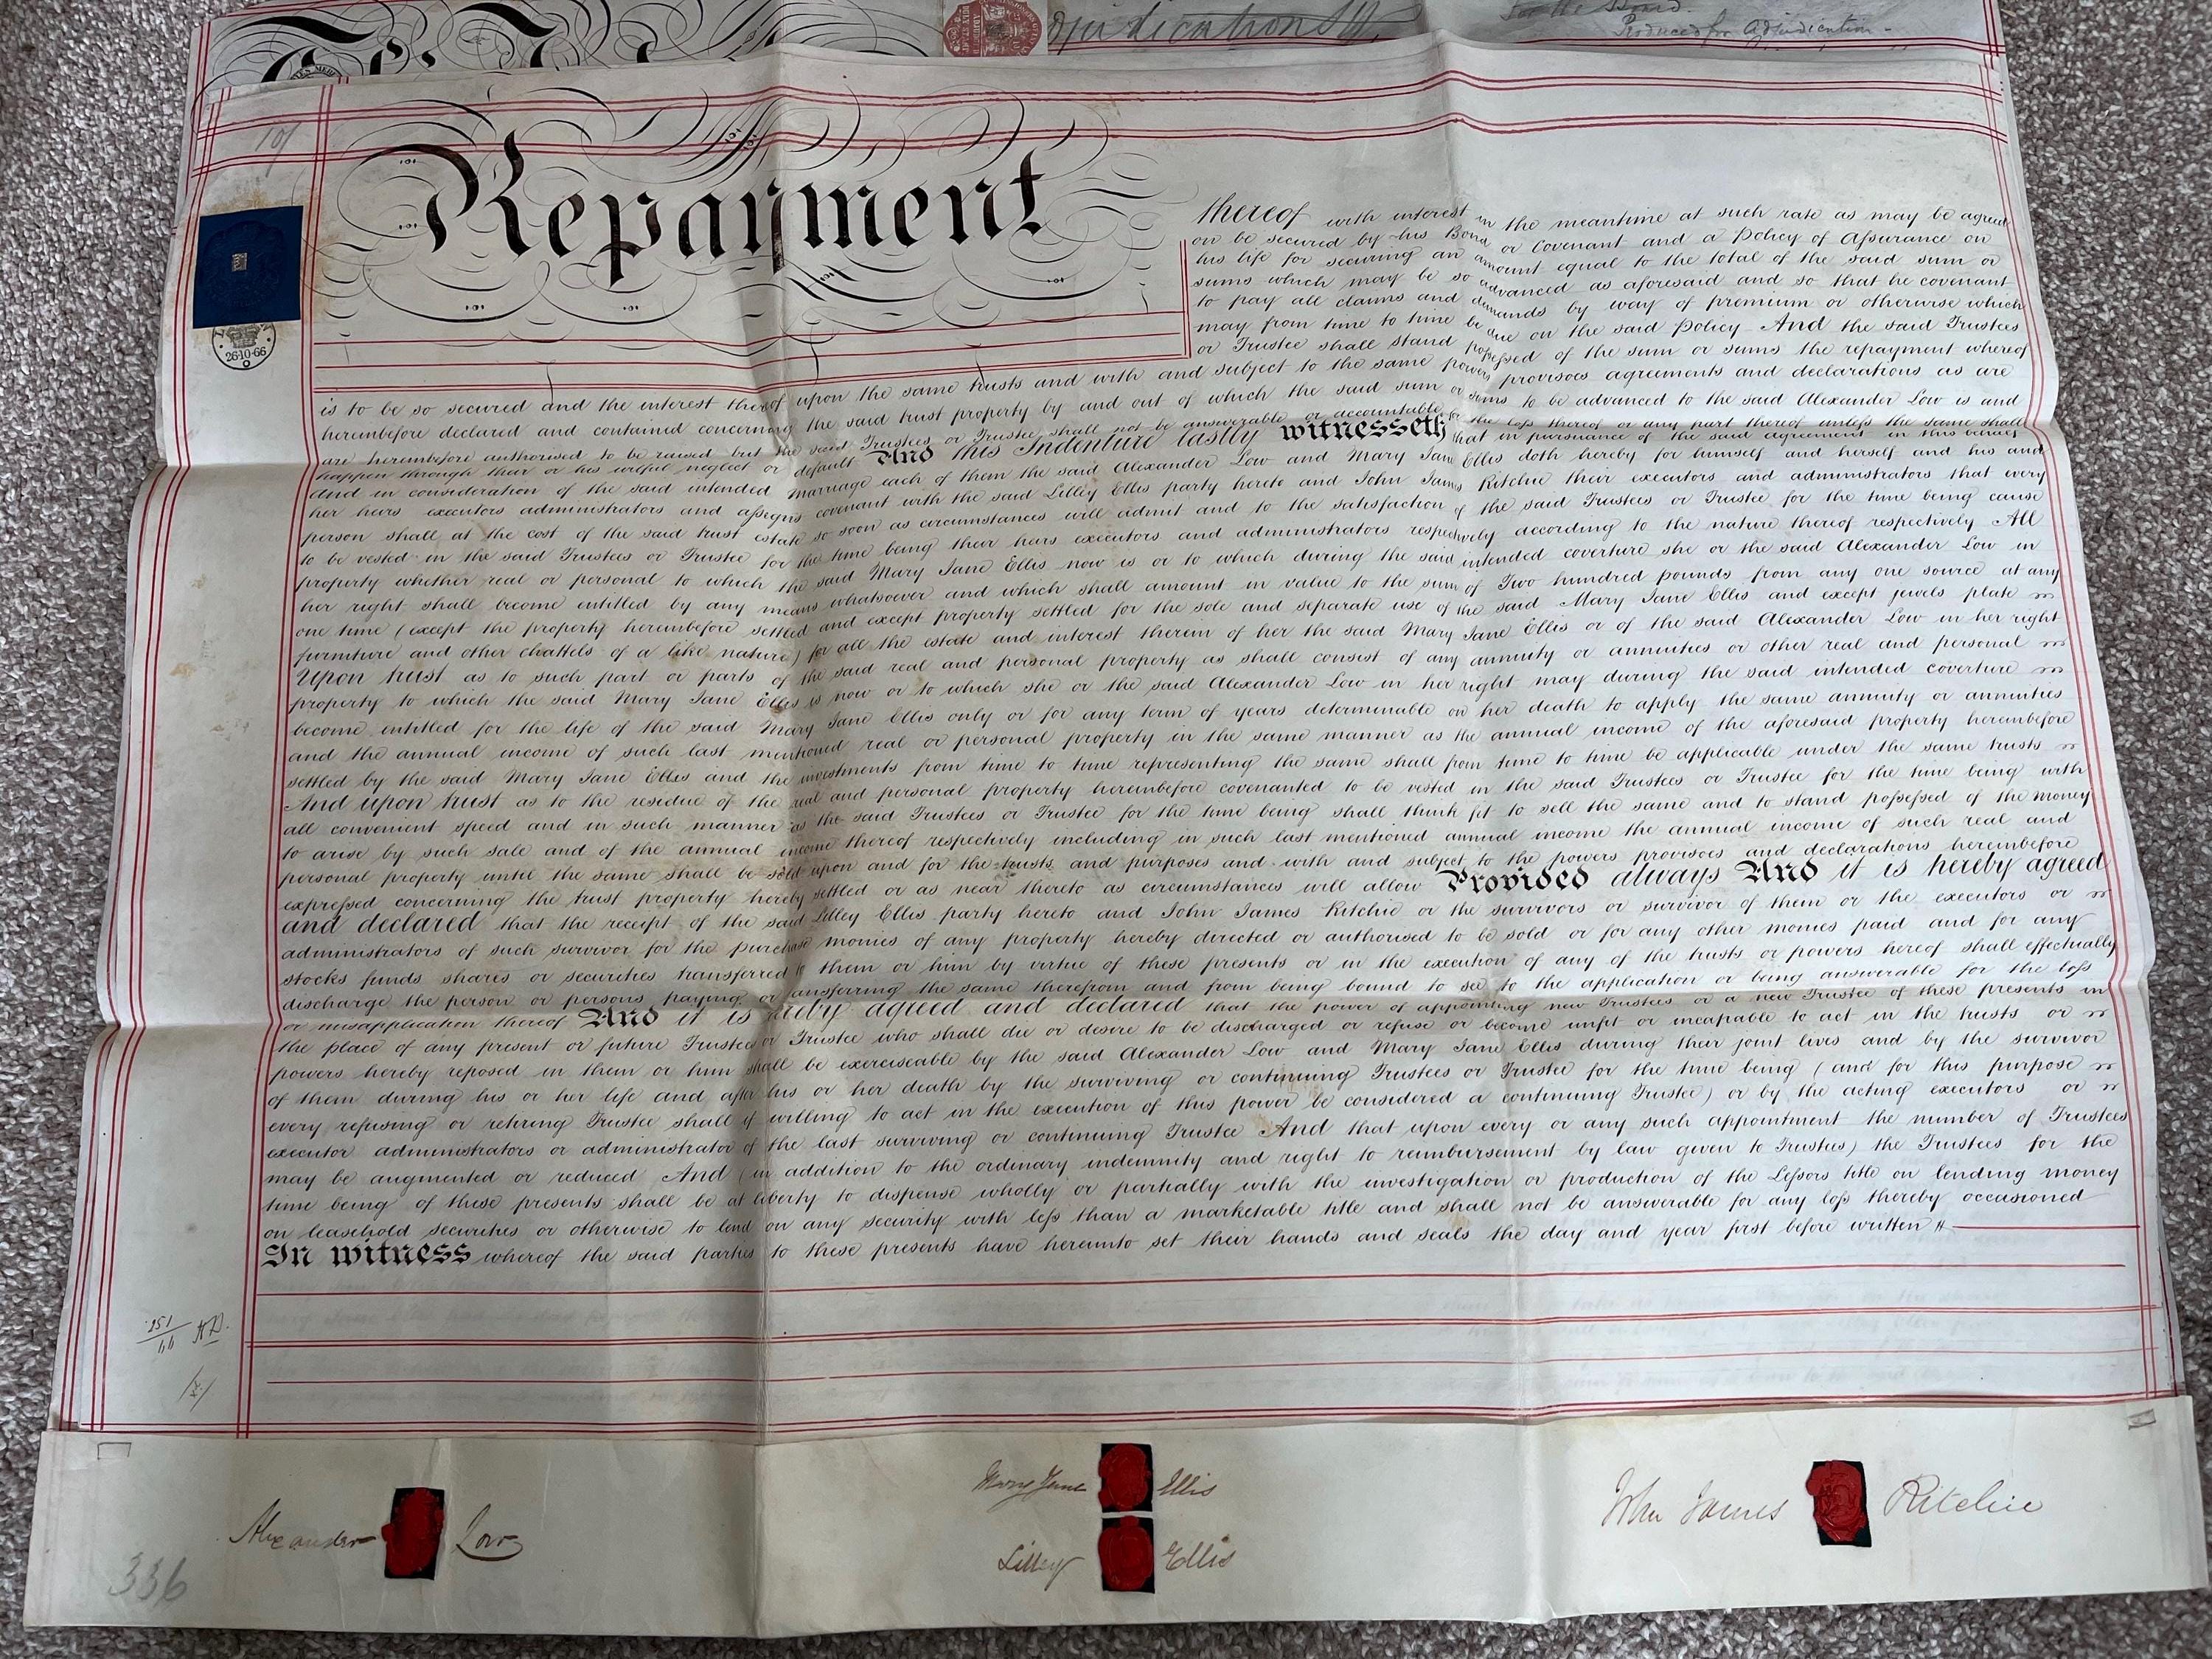 Adjudication
for the Board.
Produced for Adjudication -
10/
Repayment
26·10·66
thereof with interest in the meantime at such rate as may be agreed
on be secured by his Bond or Covenant and a Policy of Assurance on
his life for securing an amount equal to the total of the said sum or
sums which may be so advanced as aforesaid and so that he covenant
to pay all claims and demands by way of premium or otherwise which
may from time to time be due on the said Policy And the said Trustees
or Trustee shall stand possessed of the sum or sums the repayment whereof
is to be so secured and the interest thereof upon the same trusts and with and subject to the same powers provisoes agreements and declarations as are
hereinbefore declared and contained concerning the said trust property by and out of which the said sum or sums to be advanced to the said Alexander Low is and
are hereinbefore authorised to be raised but the said Trustees or Trustee shall not be answerable or accountable for the loss thereof or any part thereof unless the same shall
happen through their or his wilful neglect or default And this Indenture lastly witnesseth that in pursuance of the said agreement in this behalf
And in consideration of the said intended marriage each of them the said Alexander Low and Mary Jane Ellis doth hereby for himself and herself and his and
her heirs executors administrators and assigns covenant with the said Lilley Ellis party hereto and John James Ritchie their executors and administrators that every
person shall at the cost of the said trust estate so soon as circumstances will admit and to the satisfaction of the said Trustees or Trustee for the time being cause
to be vested in the said Trustees or Trustee for the time being their heirs executors and administrators respectively according to the nature thereof respectively All
property whether real or personal to which the said Mary Jane Ellis now is or to which during the said intended coverture she or the said Alexander Low in
her right shall become entitled by any means whatsoever and which shall amount in value to the sum of Two hundred pounds from any one source at any
one time (except the property hereinbefore settled and except property settled for the sole and separate use of the said Mary Jane Ellis and except jewels plate
furniture and other chattels of a like nature) for all the estate and interest therein of her the said Mary Jane Ellis or of the said Alexander Low in her right
Upon trust as to such part or parts of the said real and personal property as shall consist of any annuity or annuities or other real and personal
property to which the said Mary Jane Ellis is now or to which she or the said Alexander Low in her right may during the said intended coverture
become entitled for the life of the said Mary Jane Ellis only or for any term of years determinable on her death to apply the same annuity or annuities
and the annual income of such last mentioned real or personal property in the same manner as the annual income of the aforesaid property hereinbefore
settled by the said Mary Jane Ellis and the investments from time to time representing the same shall from time to time be applicable under the same trusts
And upon trust as to the residue of the real and personal property hereinbefore covenanted to be vested in the said Trustees or Trustee for the time being with
all convenient speed and in such manner as the said Trustees or Trustee for the time being shall think fit to sell the same and to stand possessed of the money
to arise by such sale and of the annual income thereof respectively including in such last mentioned annual income the annual income of such real and
personal property until the same shall be sold upon and for the trusts and purposes and with and subject to the powers provisoes and declarations hereinbefore
expressed concerning the trust property hereby settled or as near thereto as circumstances will allow Provided always And it is hereby agreed
and declared that the receipt of the said Lilley Ellis party hereto and John James Ritchie or the survivors or survivor of them or the executors or
administrators of such survivor for the purchase monies of any property hereby directed or authorised to be sold or for any other monies paid and for any
stocks funds shares or securities transferred to them or him by virtue of these presents or in the execution of any of the trusts or powers hereof shall effectually
discharge the person or persons paying or transferring the same therefrom and from being bound to see to the application or being answerable for the loss
or misapplication thereof And it is hereby agreed and declared that the power of appointing new Trustees or a new Trustee of these presents in
the place of any present or future Trustees or Trustee who shall die or desire to be discharged or refuse or become unfit or incapable to act in the trusts or
powers hereby reposed in them or him shall be exerciseable by the said Alexander Low and Mary Jane Ellis during their joint lives and by the survivor
of them during his or her life and after his or her death by the surviving or continuing Trustees or Trustee for the time being (and for this purpose
every refusing or retiring Trustee shall if willing to act in the execution of this power be considered a continuing Trustee) or by the acting executors or
executor administrators or administrator of the last surviving or continuing Trustee And that upon every or any such appointment the number of Trustees
may be augmented or reduced And (in addition to the ordinary indemnity and right to reimbursement by law given to Trustees) the Trustees for the
time being of these presents shall be at liberty to dispense wholly or partially with the investigation or production of the Lessors title on lending money
on leasehold securities or otherwise to lend on any security with less than a marketable title and shall not be answerable for any loss thereby occasioned
In witness whereof the said parties to these presents have hereunto set their hands and seals the day and year first before written
Mary Jane Ellis
Alexander Low
Lilley Ellis
John James Ritchie
336